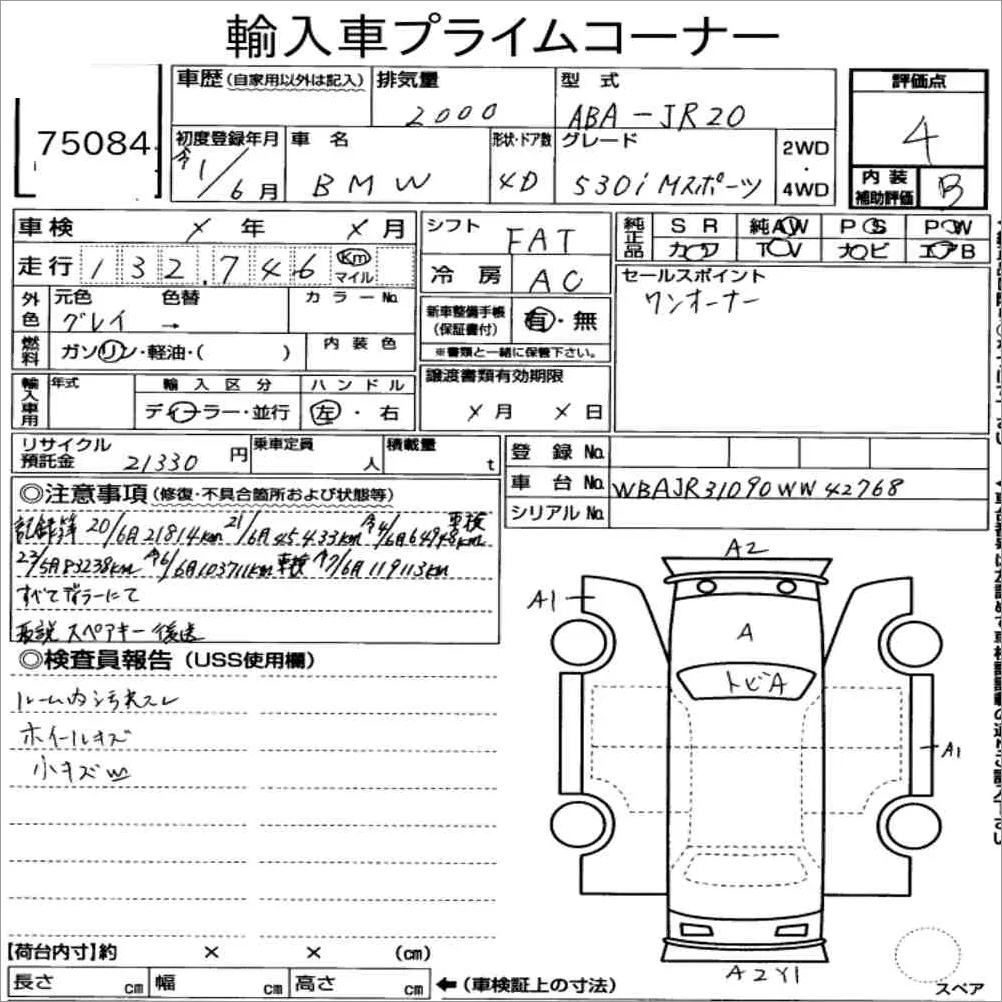 輸入車プライムコーナー
75084
車歴(自家用以外は記入)
排気量 2000
型式 ABA-JR20
評価点 4
初度登録年月 令1/6月
車名 BMW
形状・ドア数 4D
グレード 530i Mスポーツ
2WD・4WD
内装補助評価 B
車検 × 年 × 月
シフト FAT
純正品 SR 純AW PS PW
カワ TV ナビ エアB
走行 132,746 Km マイル
冷房 AC
セールスポイント
ワンオーナー
外色 元色 グレイ 色替 → カラーNo.
新車整備手帳(保証書付) 有・無
※書類と一緒に保管下さい。
燃料 ガソリン・軽油・( )
内装色
輸入車用 年式 輸入区分 ディーラー・並行 ハンドル 左・右
譲渡書類有効期限
× 月 × 日
リサイクル預託金 21330円
乗車定員 人
積載量 t
登録No.
車台No. WBAJR31090WW42768
シリアルNo.
◎注意事項(修復・不具合箇所および状態等)
記録簿 20/6月21814km 21/6月45433km 令4/6月64948km 車検
23/5月83238km 令6/6月103711km 車検 令7/6月119113km
すべてディラーにて
取説 スペアキー 後送
◎検査員報告(USS使用欄)
ルーム内汚れスレ
ホイールキズ
小キズW
A2
A1
A
トビA
A1
A2 Y1
スペア
【荷台内寸】約 × × (cm)
長さ cm 幅 cm 高さ cm ←(車検証上の寸法)